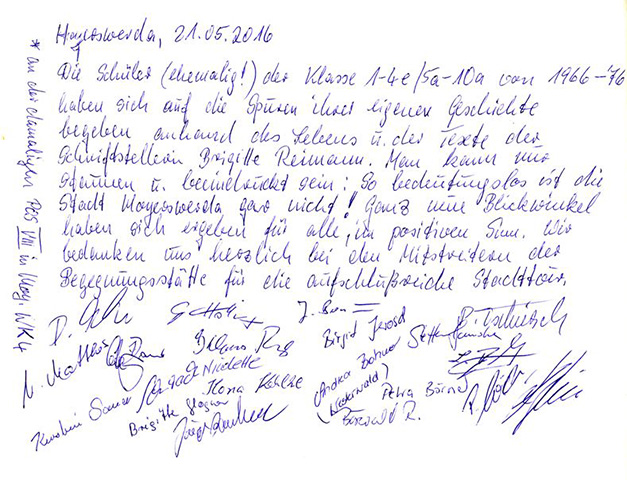 Hoyerswerda, 21.05.2016
Die Schüler (ehemalig!) der Klasse 1-4e/5a-10a von 1966-76
haben sich auf die Spuren ihrer eigenen Geschichte
begeben anhand des Lebens u. der Texte der
Schriftstellerin Brigitte Reimann. Man kann nur
staunen u. beeindruckt sein: So bedeutungslos ist die
Stadt Hoyerswerda gar nicht! Ganz neue Blickwinkel
haben sich ergeben für alle, im positiven Sinn. Wir
bedanken uns herzlich bei den Mitstreitern der
Begegnungsstätte für die aufschlußreiche Stadttour.
* an der damaligen POS VIII in Hoy. WK4
Birgit
B. Tschirsch
N. Matthes
(Andrea
Niederwald)
Ilona
Petra
Brigitte
R.